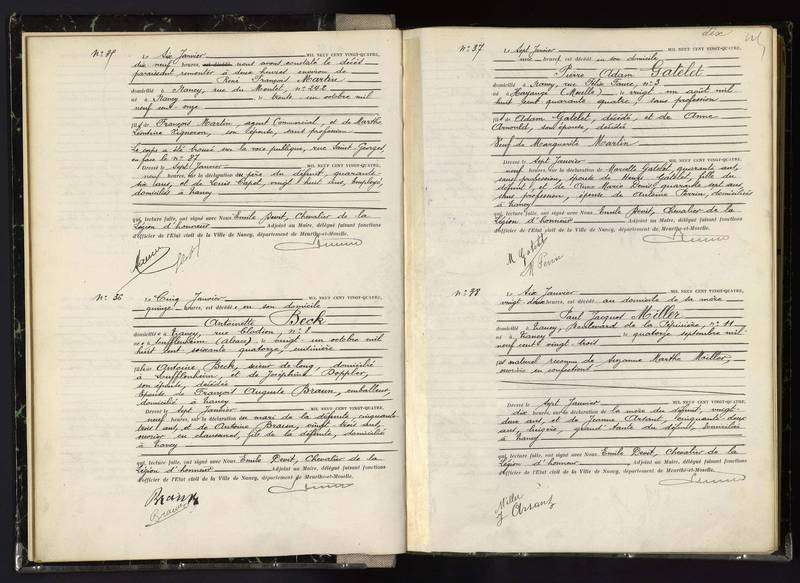 N° 35
Le Six Janvier MIL NEUF CENT VINGT-QUATRE,
dix neuf heures, est décédé nous avons constaté le décès
paraissant remonter à deux heures environ de
René François Martin
domicilié à Nancy, rue du Montet, n° 242
né à Nancy le trente un octobre mil
neuf cent onze
fils de François Martin, agent Commercial, et de Marthe
Léontine Vigneron, son épouse, sans profession
Le corps a été trouvé sur la voie publique, rue Saint Georges
en face le n° 37
Dressé le Sept Janvier MIL NEUF CENT VINGT-QUATRE,
neuf heures, sur la déclaration du père du défunt, quarante-
six ans, et de Louis Capel, vingt huit ans, employé,
domiciliés à Nancy
qui, lecture faite, ont signé avec Nous Emile Devit, Chevalier de la
Légion d'honneur Adjoint au Maire, délégué faisant fonctions
d'officier de l'Etat civil de la Ville de Nancy, département de Meurthe-et-Moselle.
N° 36
Le Cinq Janvier MIL NEUF CENT VINGT-QUATRE,
quinze heures, est décédée en son domicile
Antoinette Beck
domiciliée à Nancy, rue Clodion, n° 8
née à Soufflenheim (Alsace) le vingt un octobre mil
huit cent soixante quatorze, cuisinière
fille de Antoine Beck, scieur de long, domicilié
à Soufflenheim, et de Joséphine Doppler,
son épouse, décédée
Epouse de François Auguste Braun, emballeur,
domicilié à Nancy
Dressé le Sept Janvier MIL NEUF CENT VINGT-QUATRE,
neuf heures, sur la déclaration du mari de la défunte, cinquante
trois ans, et de Antoine Braun, vingt trois ans,
ouvrier en chaussures, fils de la défunte, domicilié
à Nancy
qui, lecture faite, ont signé avec Nous Emile Devit, Chevalier de la
Légion d'honneur Adjoint au Maire, délégué faisant fonctions
d'officier de l'Etat civil de la Ville de Nancy, département de Meurthe-et-Moselle.
Braun
Braun
dix
N° 37
Le Sept Janvier MIL NEUF CENT VINGT-QUATRE,
une heure, est décédé en son domicile
Pierre Adam Gatelet
domicilié à Nancy, rue Félix Faure, n° 3
né à Hayange (Moselle) le vingt un août mil
huit cent quarante quatre, sans profession
fils de Adam Gatelet, décédé, et de Anne
Arnould, son épouse, décédée
Veuf de Marguerite Martin
Dressé le Sept Janvier MIL NEUF CENT VINGT-QUATRE,
neuf heures, sur la déclaration de Marcelle Gatelet, quarante ans,
sans profession, épouse de Henri Gatelet, fille du
défunt, et de Anne Marie Denis, quarante sept ans,
sans profession, épouse de Antoine Perrin, domiciliées
à Nancy
qui, lecture faite, ont signé avec Nous Emile Devit, Chevalier de la
Légion d'honneur Adjoint au Maire, délégué faisant fonctions
d'officier de l'Etat civil de la Ville de Nancy, département de Meurthe-et-Moselle.
M Gatelet
N° 38
Le Six Janvier MIL NEUF CENT VINGT-QUATRE,
vingt deux heures, est décédé au domicile de la mère
Paul Jacquot Miller
domicilié à Nancy, Boulevard de la Pépinière, n° 11
né à Nancy le quatorze septembre mil
neuf cent vingt trois
fils naturel reconnu de Suzanne Marthe Miller,
ouvrière en confections
Dressé le Sept Janvier MIL NEUF CENT VINGT-QUATRE,
dix heures, sur la déclaration de la mère du défunt, vingt
deux ans, et de Jeanne Arsant, cinquante deux
ans, lingère, grand tante du défunt, domiciliées
à Nancy
qui, lecture faite, ont signé avec Nous Emile Devit, Chevalier de la
Légion d'honneur Adjoint au Maire, délégué faisant fonctions
d'officier de l'Etat civil de la Ville de Nancy, département de Meurthe-et-Moselle.
Miller
J Arsant